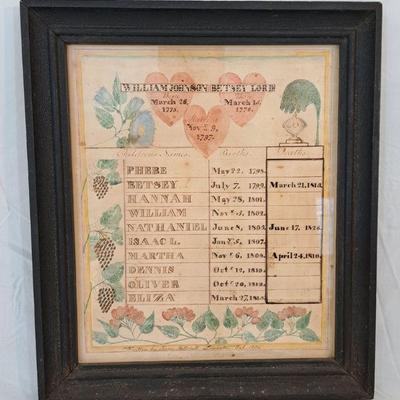 WILLIAM JOHNSON BETSEY LORD
Born Born
March 28, March 16,
1775. 1776.
Married
Nov. 9,
1797.
Children's Names. Births. Deaths.
PHEBE May 22, 1798.
BETSEY July 7, 1799. March 21, 1813.
HANNAH May 28, 1801.
WILLIAM 1802.
NATHANIEL June 8, 1805. June 17, 1826.
ISAAC L. 1807.
MARTHA Nov. 6, 1808. April 24, 1810.
DENNIS Oct. 1810.
OLIVER Oct. 20, 1812.
ELIZA March 27,